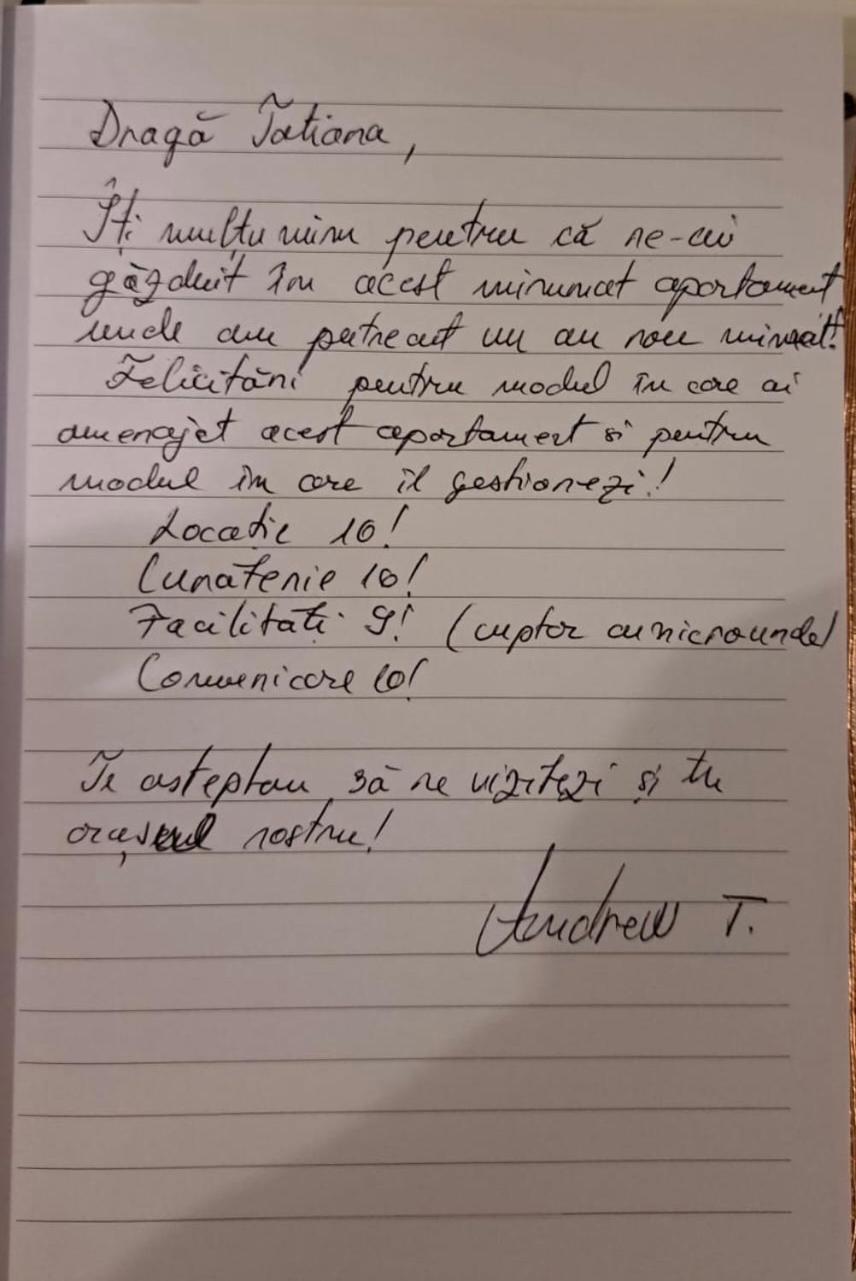 Dragă Tatiana,
Îți mulțumim pentru că ne-ai
găzduit în acest minunat apartament
unde am petrecut un an nou minunat!
Felicitări pentru modul în care ai
amenajat acest apartament si pentru
modul în care îl gestionezi!
Locație 10!
Curatenie 10!
Facilitati 9! (cuptor cu microunde)
Comunicare 10!
Te asteptam să ne vizitezi și tu
orașul nostru!
Andrew T.